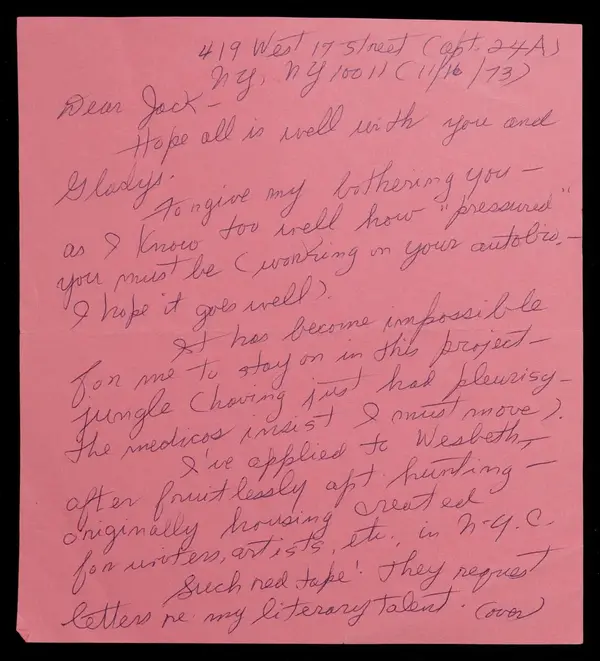 419 West 17 Street (Apt. 24A)
NY, NY 10011 (11/16/73)
Dear Jack –
Hope all is well with you and
Gladys.
Forgive my bothering you –
as I know too well how "pressured"
you must be (working on your autobio. –
I hope it goes well).
It has become impossible
for me to stay on in this project –
jungle (having just had pleurisy –
the medicos insist I must move).
I've applied to Wesbeth –
after fruitlessly apt hunting –
originally housing created
for writers, artists, etc., in N.Y.C.
Such red tape! They request
letters re my literary talent. (over)